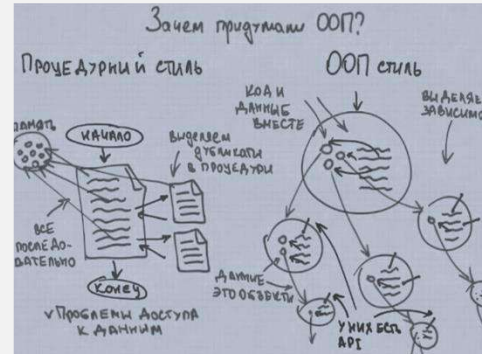 Зачем придумали ООП?
ПРОЦЕДУРНЫЙ СТИЛЬ
ПАМЯТЬ
НАЧАЛО
ВЫДЕЛЯЕМ
ДУБЛИКАТЫ
В ПРОЦЕДУРЫ
ВСЕ
ПОСЛЕДО-
ВАТЕЛЬНО
КОНЕЦ
√ ПРОБЛЕМЫ ДОСТУПА
К ДАННЫМ
ООП СТИЛЬ
КОД И
ДАННЫЕ
ВМЕСТЕ
ВЫДЕЛЯЕ
ЗАВИСИМО
ДАННЫЕ
ЭТО ОБЪЕКТЫ
У НИХ ЕСТЬ
API